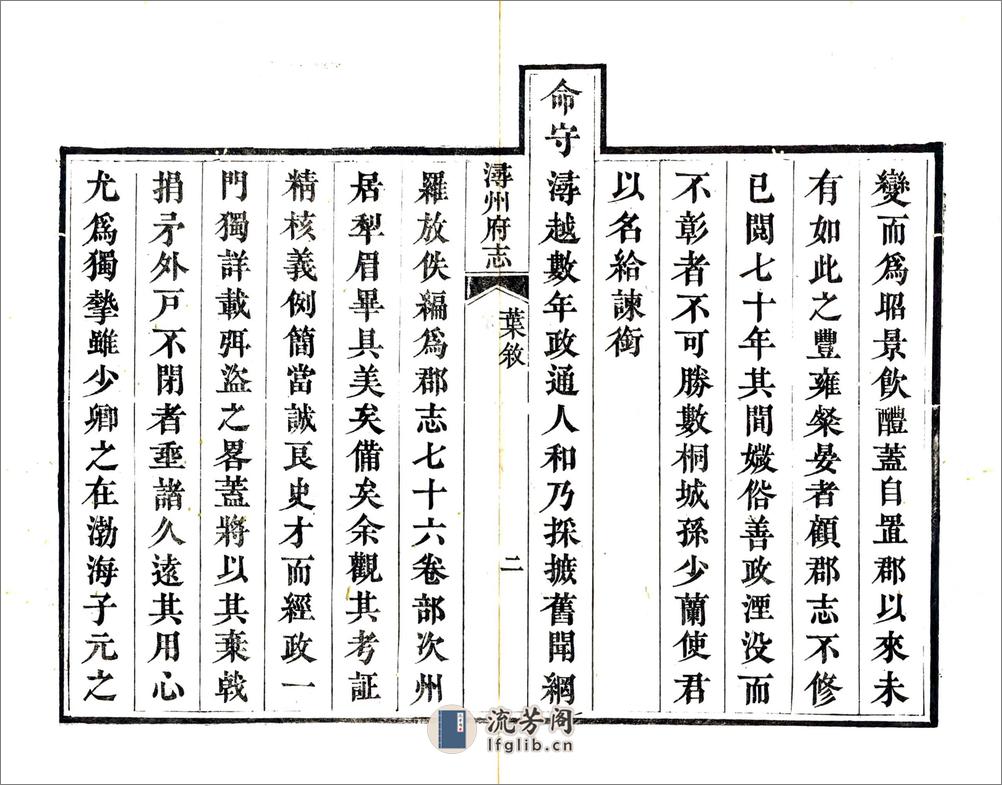 變而爲昭景飲醴蓋自置郡以來未
有如此之豐雍粲晏者顧郡志不修
已閱七十年其間媺俗善政湮没而
不彰者不可勝數桐城孫少蘭使君
以名給諫銜
命守潯越數年政通人和乃採摭舊聞網
潯州府志
葉敘
二
羅放佚編爲郡志七十六卷部次州
居犁眉畢具美矣備矣余觀其考証
精核義例簡當誠良史才而經政一
門獨詳載弭盜之畧蓋將以其棄戟
捐矛外戸不閉者埀諸久遠其用心
尤爲獨摯雖少卿之在渤海子元之
流芳阁
lfglib.cn